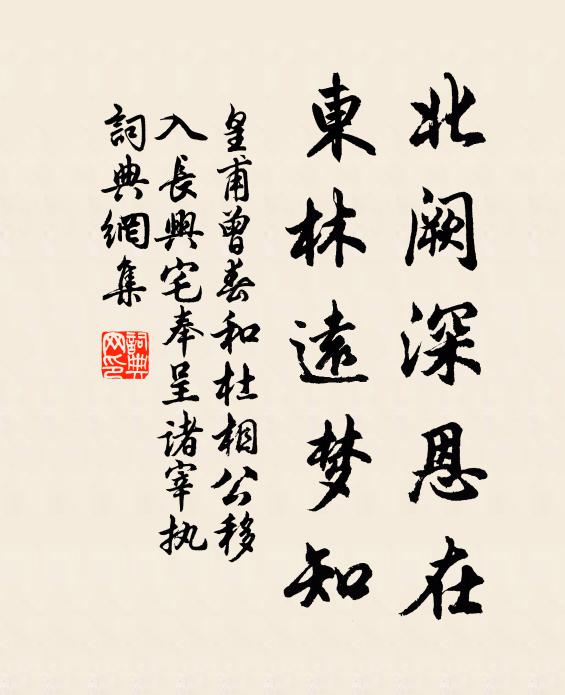 北阙深恩在
東林遠梦知
皇甫曾春和杜相公移
入長興宅奉呈诸宰执
詞典網集
詞典网印